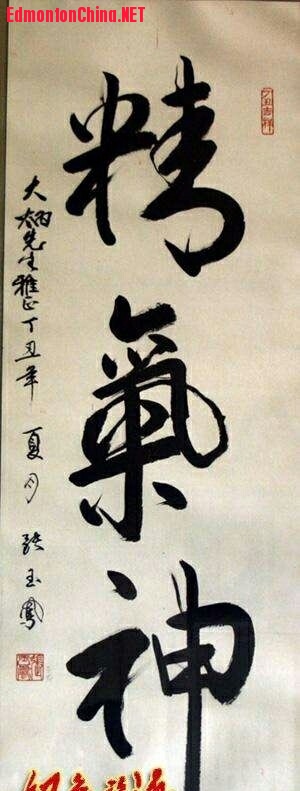 EdmontonChina.NET
精氣神
大炳先生雅正丁丑年 夏月 張玉鳳